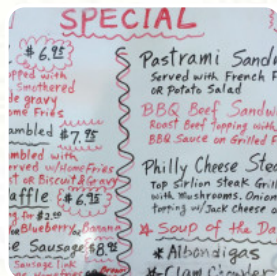 SPECIAL
$6.95
pped with
Smothered
de gravy
ome Fries
ambled $7.95
mbled with
rved w/Home Fries
st or Biscuit & Gravy
affle $6.75
g for $2.00
Blueberry, Banana
e Sausage $8.95
Sausage link
Pastrami Sandw
Served with French F
OR Potato Salad
BBQ Beef Sandw
Roast Beef Topping with
BBQ Sauce on Grilled F
Philly Cheese Stea
Top Sirlion Steak Gri
with Mushrooms, Onion
Topping w/Jack Cheese o
Soup of the Da
* Albondigas
* Clam Chowde